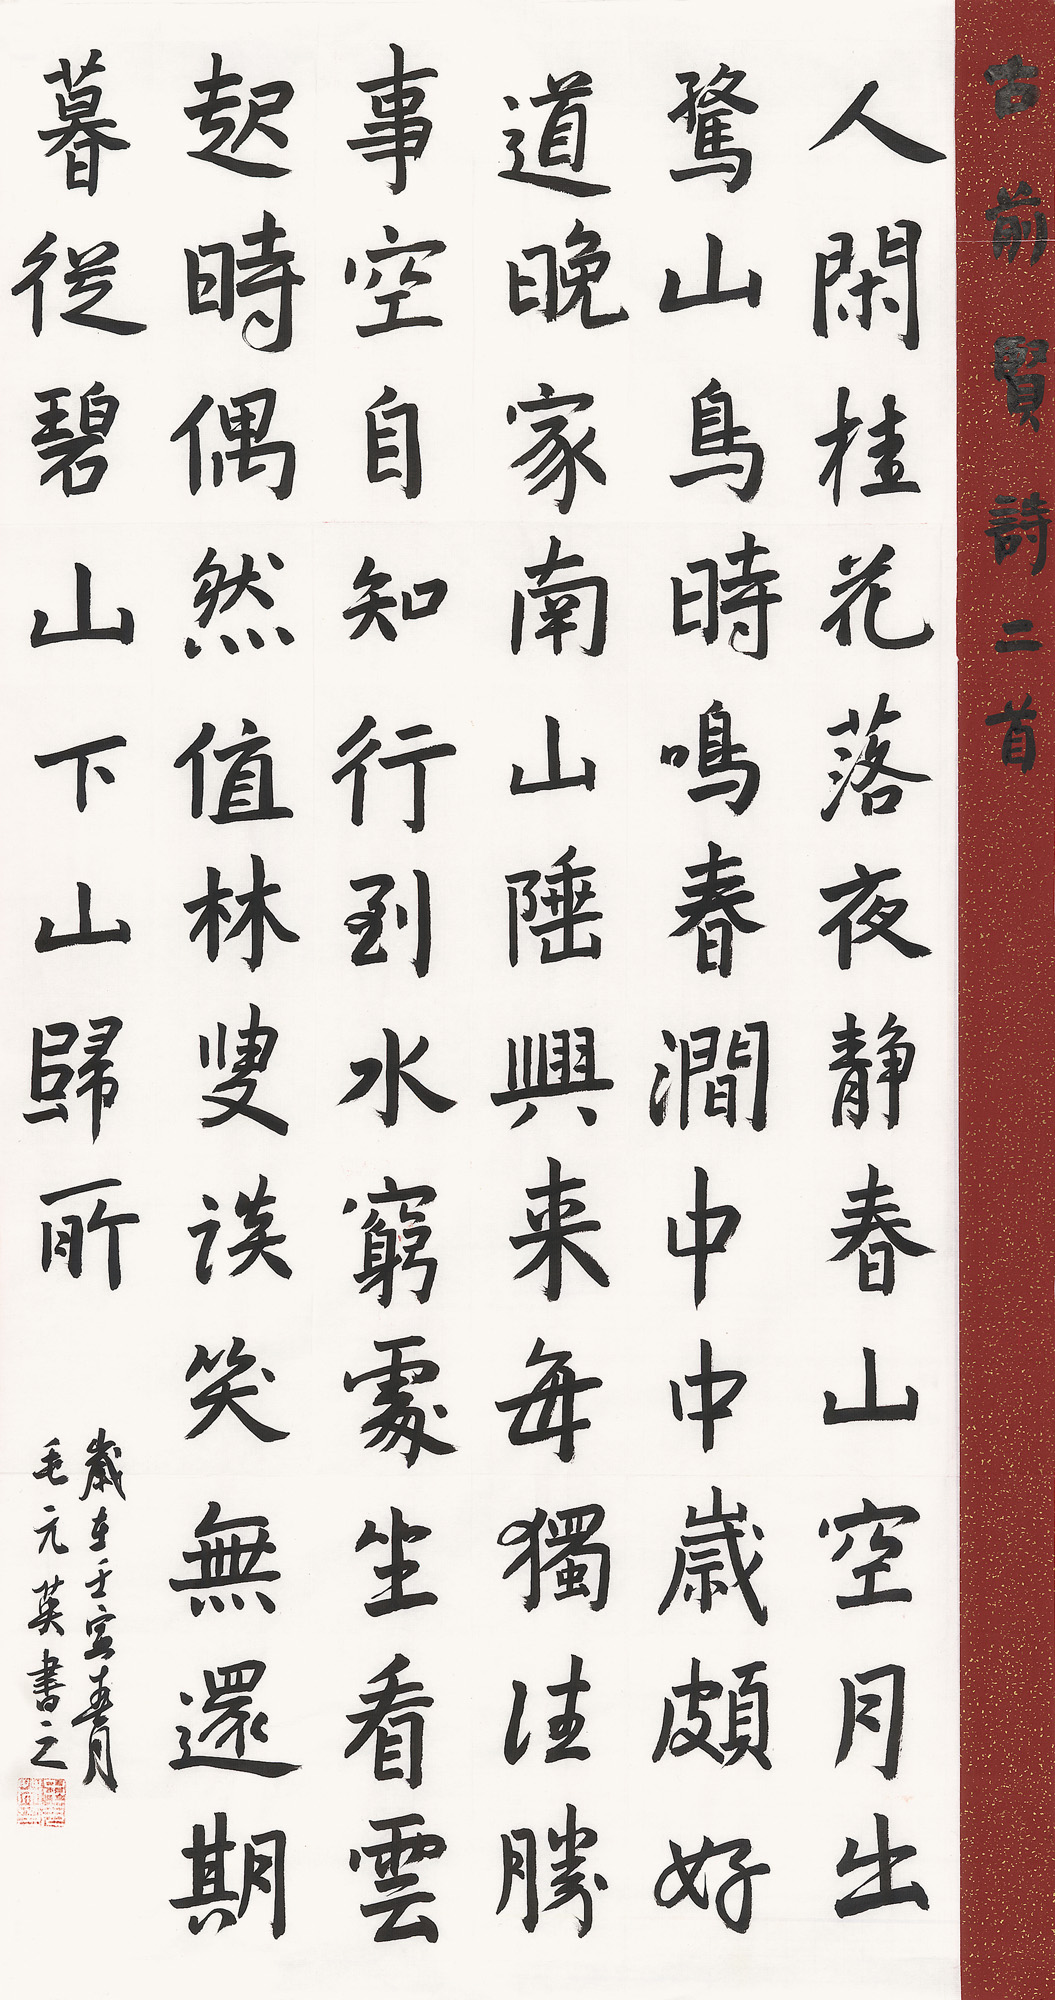 古前賢詩二首
人閑桂花落夜静春山空月出
驚山鳥時鳴春澗中中歲頗好
道晚家南山陲興来每獨往勝
事空自知行到水窮處坐看雲
起時偶然值林叟談笑無還期
暮從碧山下山歸所
歲在壬寅月
毛元英書之